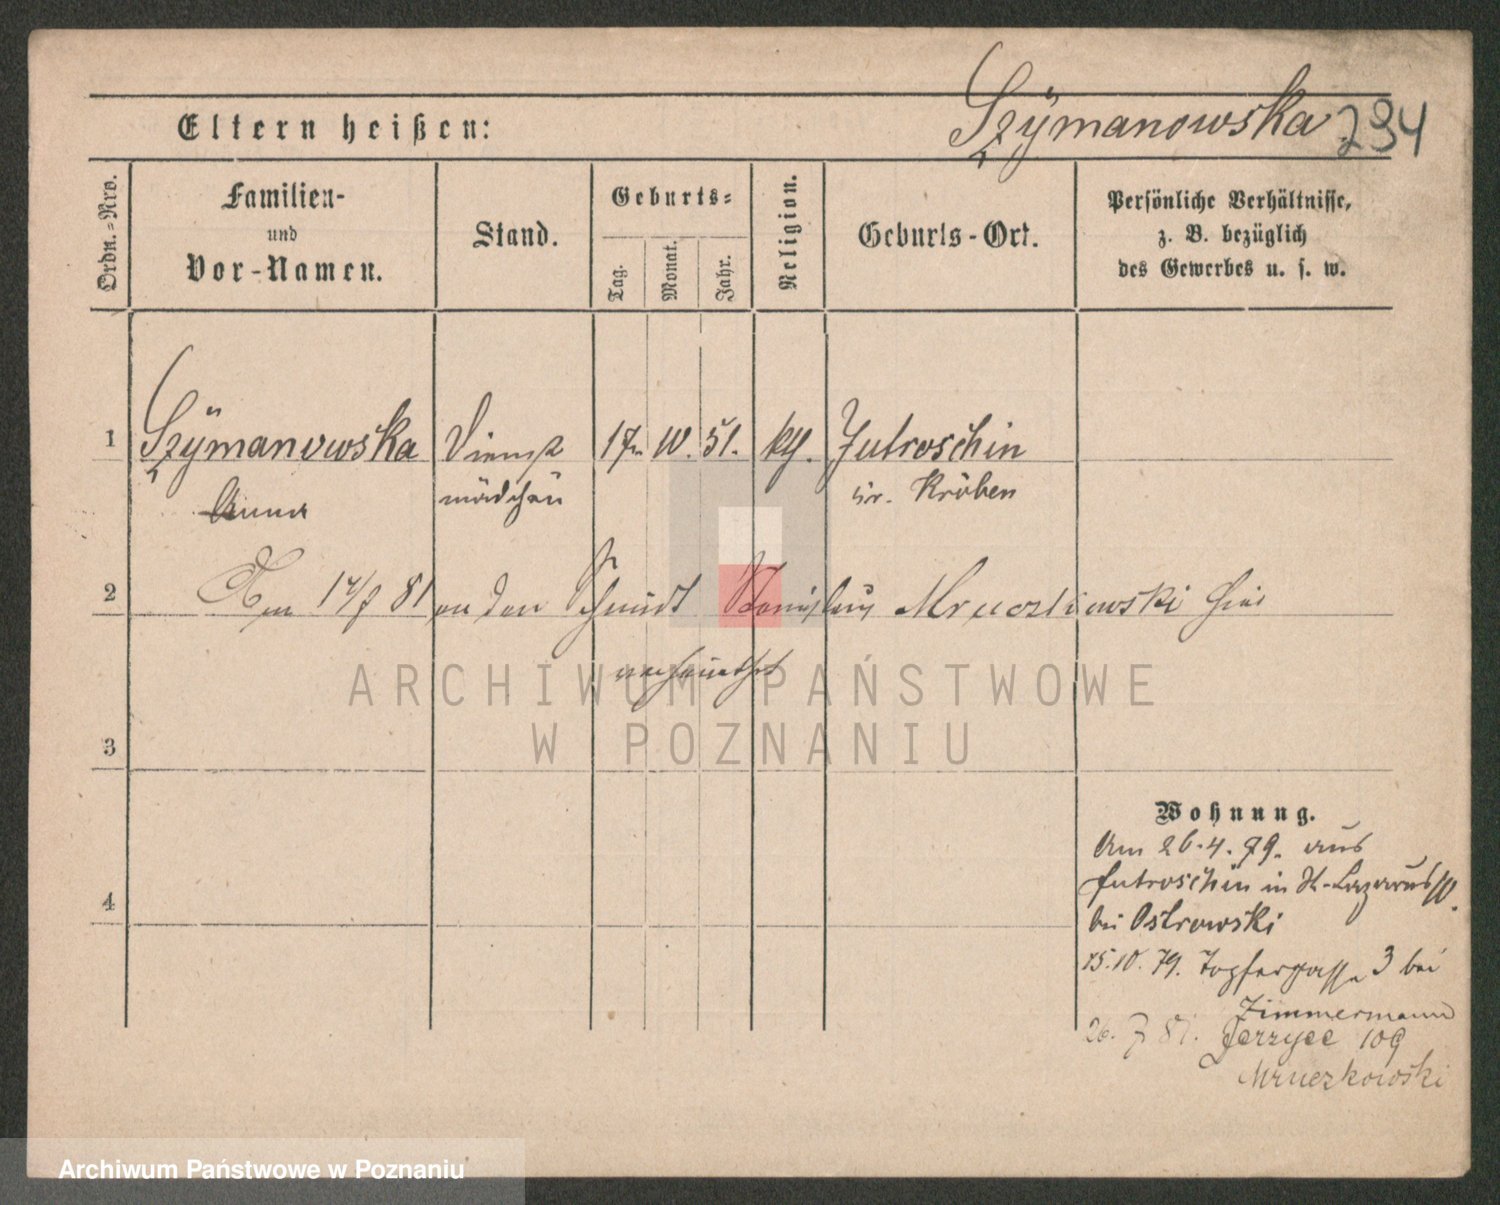 Szymanowska 294
Eltern heißen:
Ordn.-Nro.
Familien-
und
Vor-Namen.
Stand.
Geburts-
Tag.
Monat.
Jahr.
Religion.
Geburts-Ort.
Persönliche Verhältnisse,
z. B. bezüglich
des Gewerbes u. s. w.
1 Szÿmanowska Dienst 17. 10. 51. kth. Jutroschin
Anna mädchen Kr. Kröben
2 Am 14/7 81 an den Schmidt Stanislaus Mruczkowski hier
verheirathet
ARCHIWUM PAŃSTWOWE
W POZNANIU
3
Wohnung.
Am 26.4.79. aus
Jutroschin in St. Lazarus
4
bei Ostrowski
15.10.79. Topfergasse 3 bei
Zimmermann
26. 7 81. Jerzyce 109
Mruczkowski
Archiwum Państwowe w Poznaniu